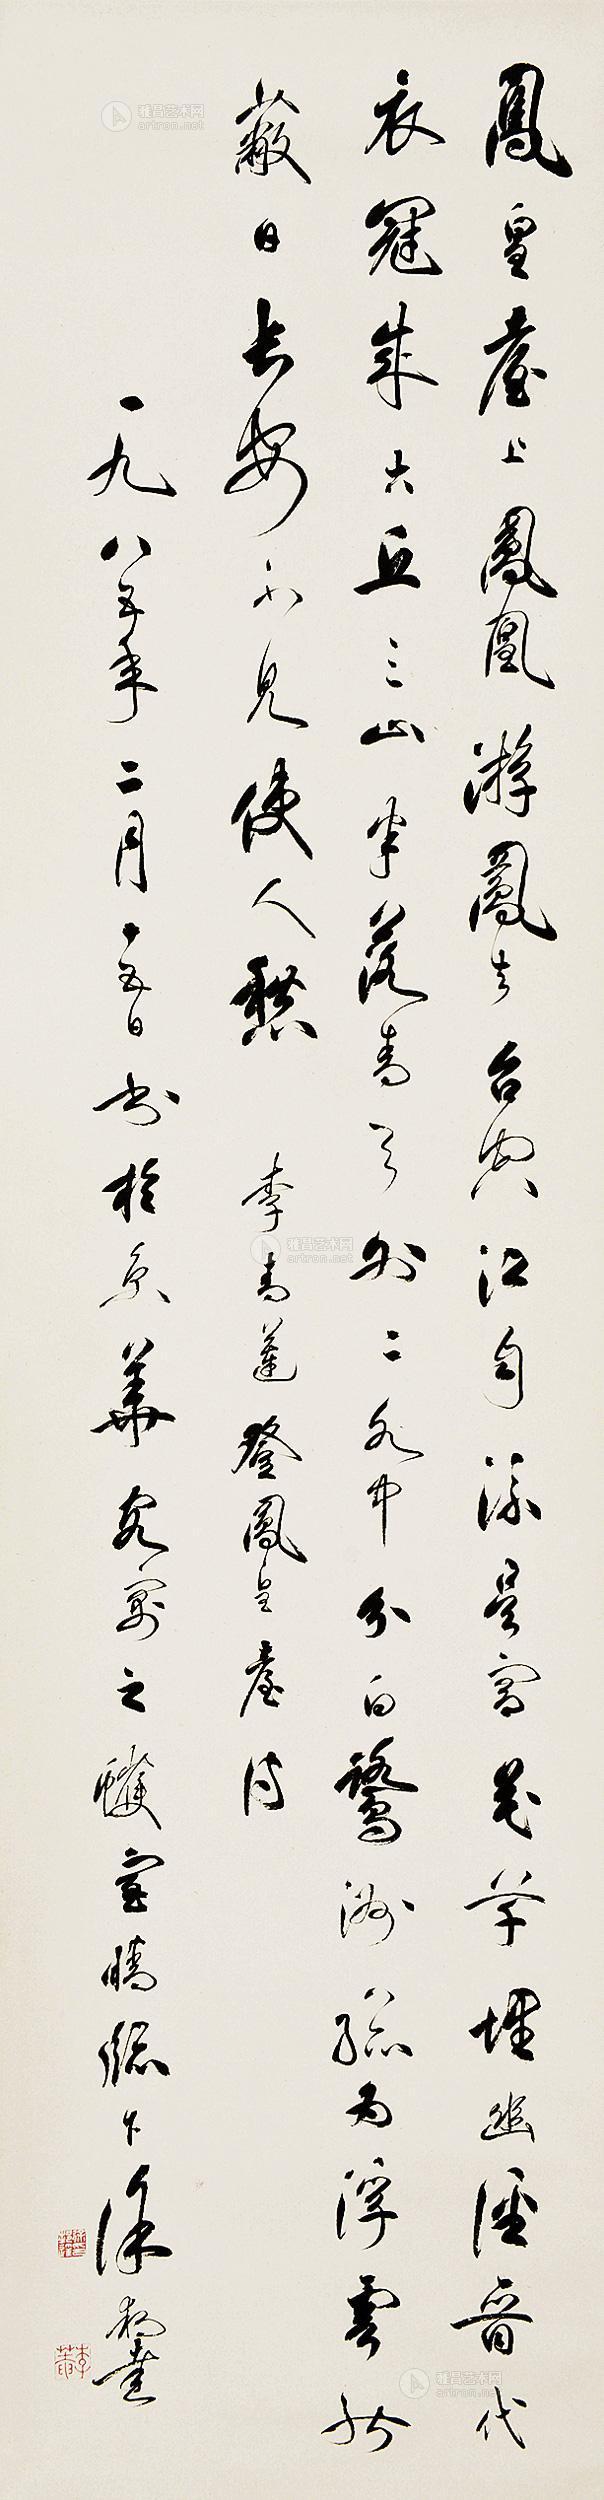 鳳皇臺上鳳凰游鳳去台空江自流吳宮花草埋幽徑晉代
衣冠成古丘三山半落青天外二水中分白鷺洲總為浮雲能
蔽日長安不見使人愁 李青蓮登鳳皇臺詩
一九八五年二月十五日書於京華客寓之雙室晴牕下徐
雅昌艺术网
artron.net
雅昌艺术网
artron.net
雅昌艺术网
artron.net